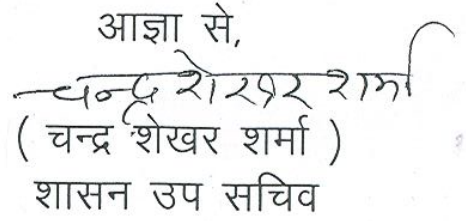 आज्ञा से,
चन्द्र शेखर शर्मा
( चन्द्र शेखर शर्मा )
शासन उप सचिव